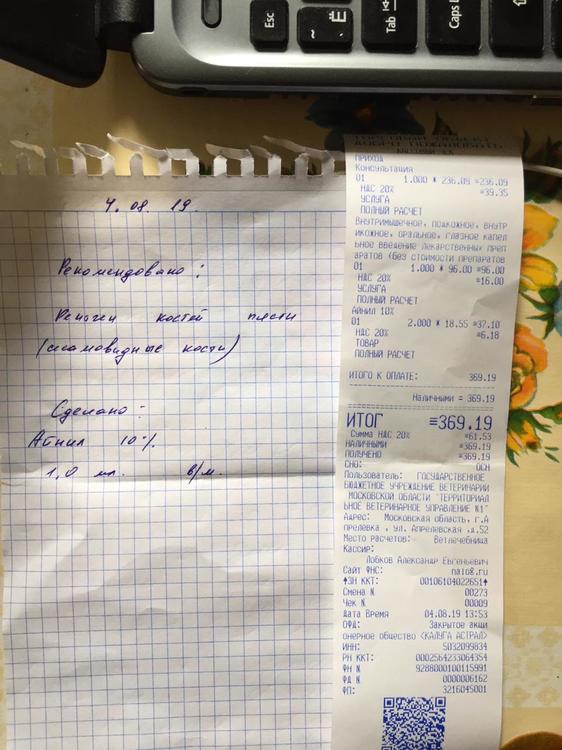 Esc
~
Ё
Tab
Caps
4. 08. 19.
Рекомендовано:
Рентген костей пясти
(сесамовидные кости)
Сделано:
Айнил 10%
1,0 мл. в/м.
ДОБРО ПОЖАЛОВАТЬ
КАССОВЫЙ ЧЕК
ПРИХОД
Консультация
01 1.000 * 236.09 =236.09
НДС 20% =39.35
УСЛУГА
ПОЛНЫЙ РАСЧЕТ
Внутримышечное, подкожное, внутр
икожное, оральное, глазное капел
ьное введение лекарственных преп
аратов (без стоимости препаратов
01 1.000 * 96.00 =96.00
НДС 20% =16.00
УСЛУГА
ПОЛНЫЙ РАСЧЕТ
Айнил 10%
01 2.000 * 18.55 =37.10
НДС 20% =6.18
ТОВАР
ПОЛНЫЙ РАСЧЕТ
ИТОГО К ОПЛАТЕ: 369.19
Наличными = 369.19
ИТОГ =369.19
Сумма НДС 20% =61.53
НАЛИЧНЫМИ =369.19
ПОЛУЧЕНО =369.19
СНО: ОСН
Пользователь: ГОСУДАРСТВЕННОЕ
БЮДЖЕТНОЕ УЧРЕЖДЕНИЕ ВЕТЕРИНАРИИ
МОСКОВСКОЙ ОБЛАСТИ "ТЕРРИТОРИАЛ
ЬНОЕ ВЕТЕРИНАРНОЕ УПРАВЛЕНИЕ №1"
Адрес: Московская область, г.А
прелевка , ул. Апрелевская ,д.52
Место расчетов: Ветлечебница
Кассир:
Лобков Александр Евгеньевич
Сайт ФНС: nalog.ru
ЗН ККТ: 00106104022651
Смена N 00273
Чек N 00009
Дата Время 04.08.19 13:53
ОФД: Закрытое акци
онерное общество <КАЛУГА АСТРАЛ>
ИНН: 5032099834
РН ККТ: 0002564233064354
ФН N 9288000100115991
ФД N 0000006162
ФП: 3216045001